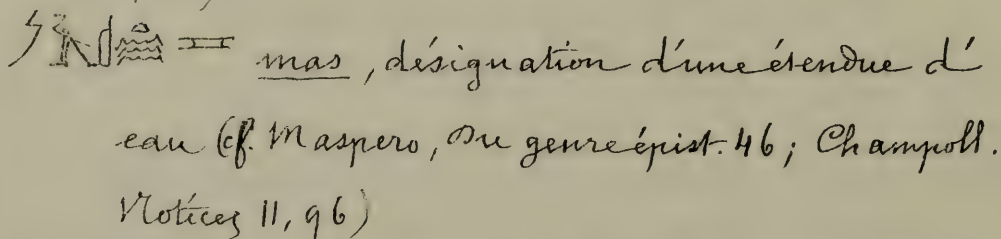 mas, désignation d'une étendue d'
eau (cf. Maspero, Du genre épist. 46; Champoll.
Notices II, 96)